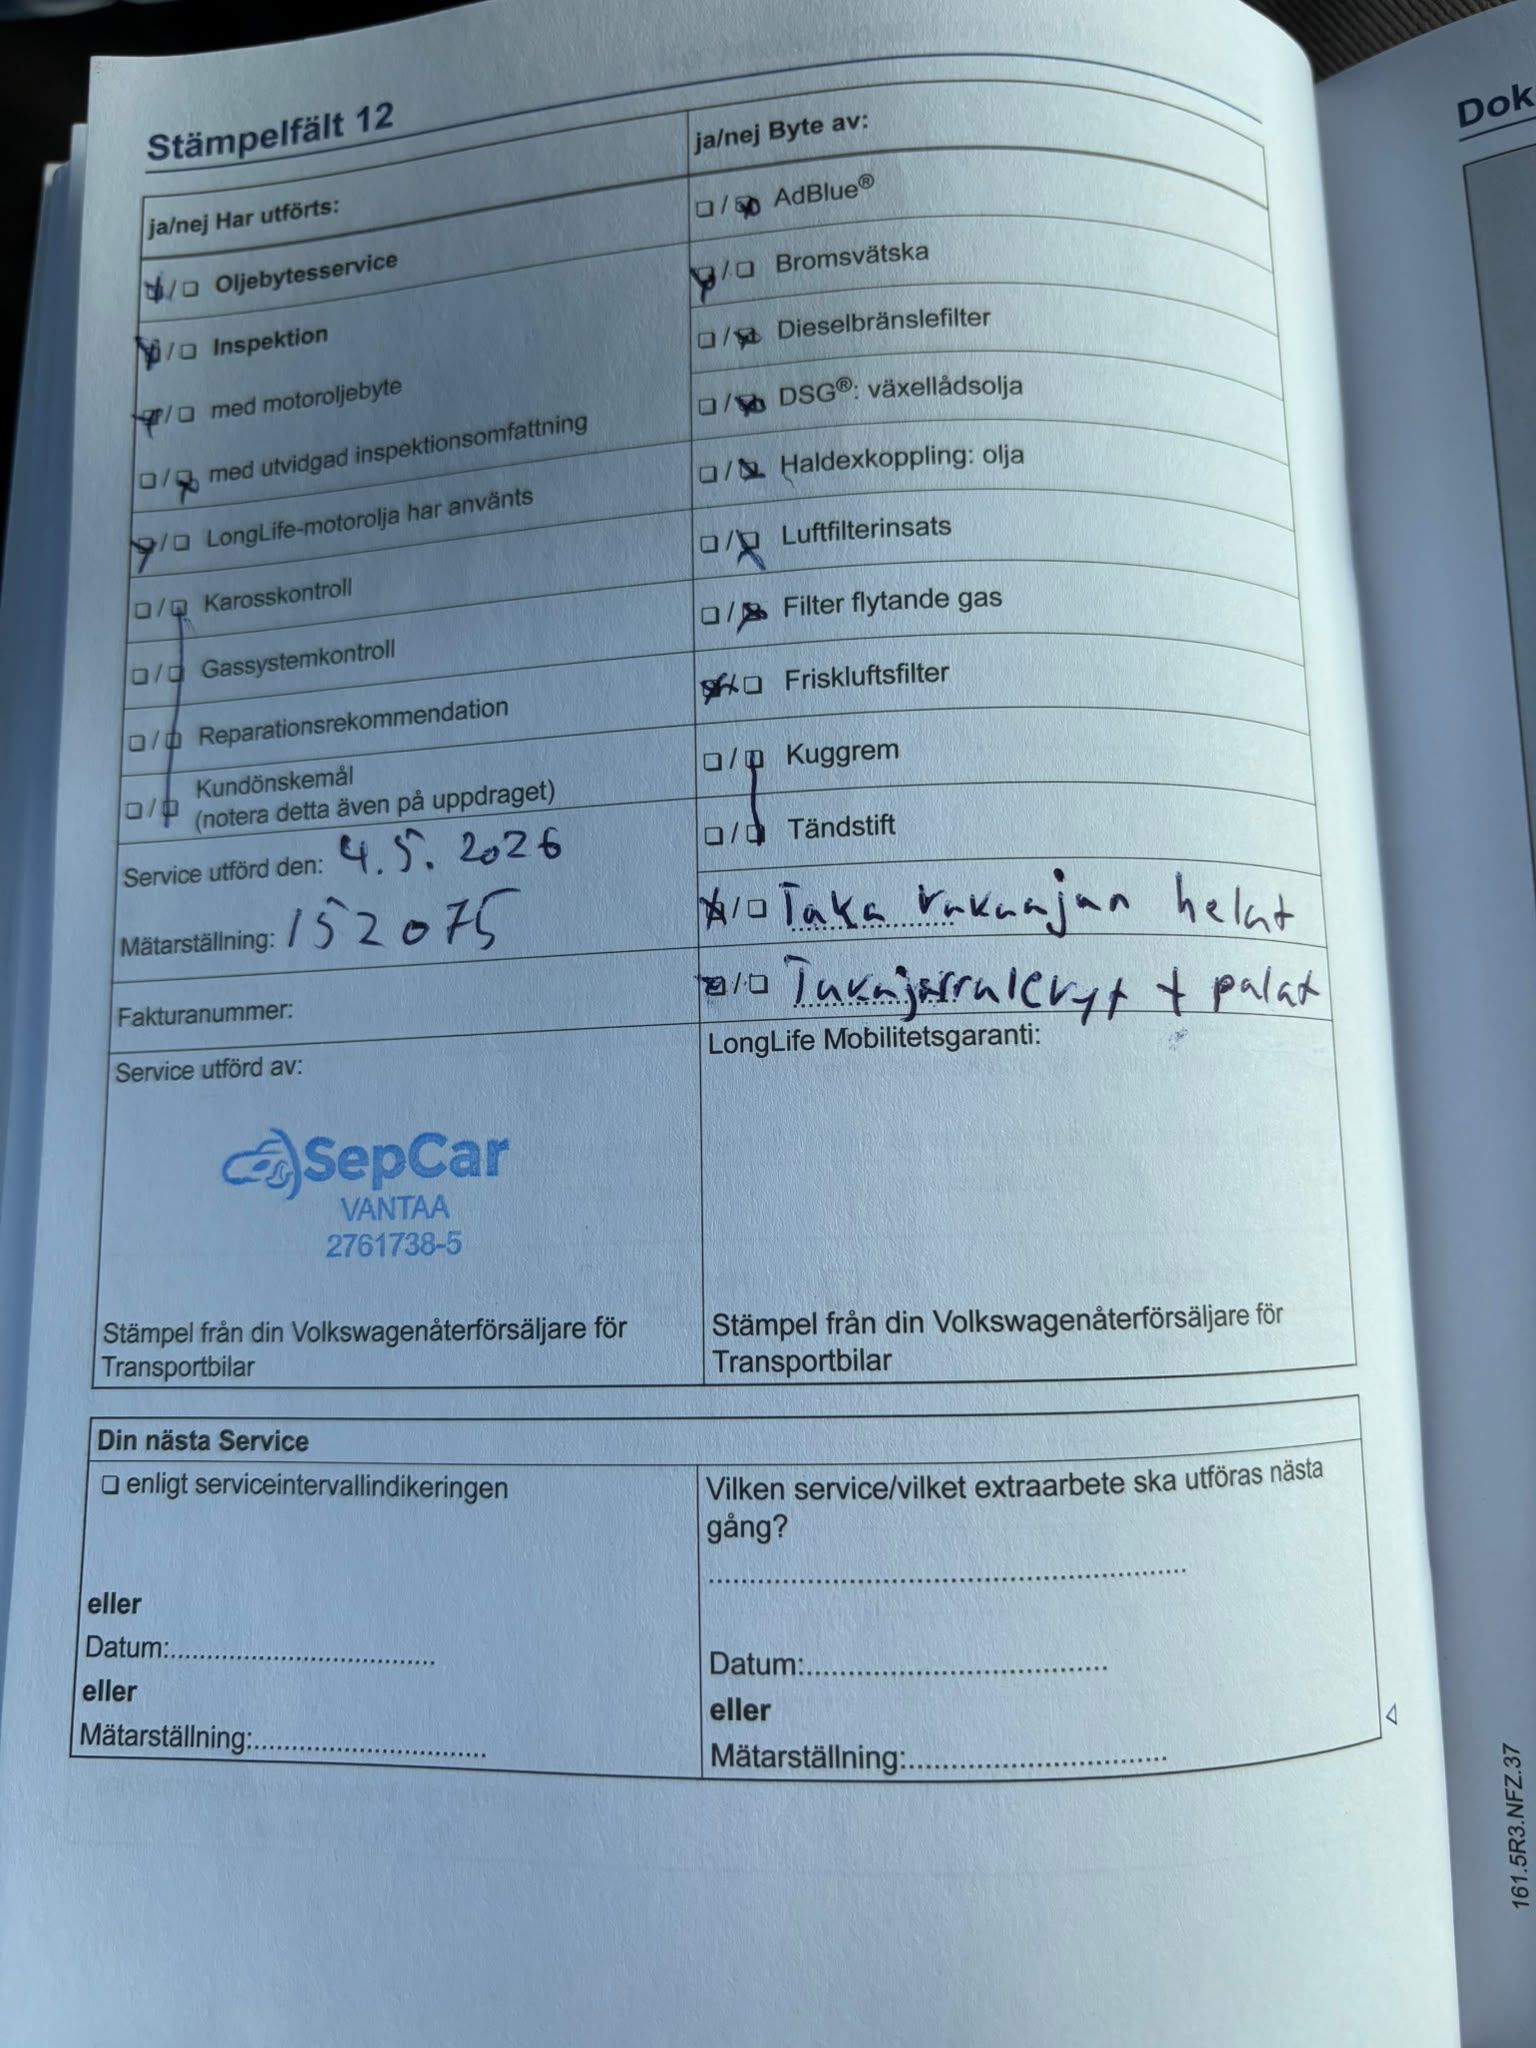 Stämpelfält 12
ja/nej Har utförts:
Oljebytesservice
Inspektion
med motoroljebyte
med utvidgad inspektionsomfattning
LongLife-motorolja har använts
Karosskontroll
Gassystemkontroll
Reparationsrekommendation
Kundönskemål
(notera detta även på uppdraget)
Service utförd den: 4.5.2026
Mätarställning: 152075
Fakturanummer:
Service utförd av:
SepCar
VANTAA
2761738-5
Stämpel från din Volkswagenåterförsäljare för
Transportbilar
ja/nej Byte av:
AdBlue®
Bromsvätska
Dieselbränslefilter
DSG®: växellådsolja
Haldexkoppling: olja
Luftfilterinsats
Filter flytande gas
Friskluftsfilter
Kuggrem
Tändstift
Taka vakaajan helat
Takajarrulevyt + palat
LongLife Mobilitetsgaranti:
Stämpel från din Volkswagenåterförsäljare för
Transportbilar
Din nästa Service
enligt serviceintervallindikeringen
eller
Datum:
eller
Mätarställning:
Vilken service/vilket extraarbete ska utföras nästa
gång?
Datum:
eller
Mätarställning:
Dok
161.5R3.NFZ.37